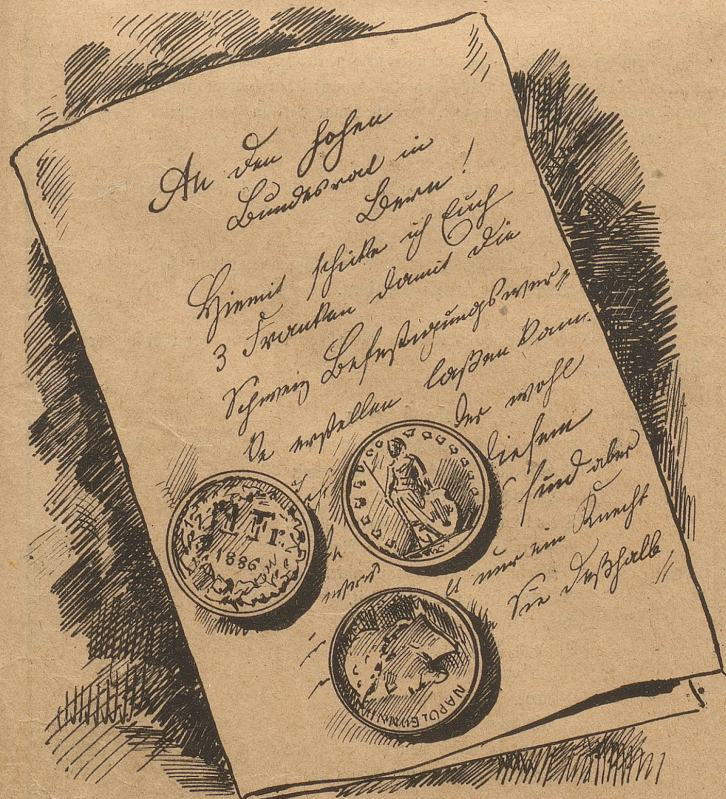 An den hohen
Bundesrat in
Bern!
Hiemit schicke ich Euch
3 Franken damit die
Schweiz Befestigungswer-
ke erstellen laßen kann.
der wohl
diesem
sind aber
nur ein Knecht
Sie deßhalb
1 Fr.
1886
NAPOLEON III